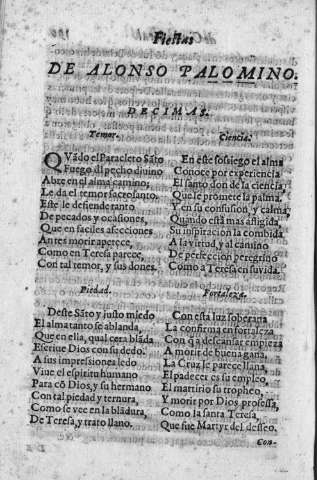 Fiestas
DE ALONSO PALOMINO.
DECIMAS.
Temor.
QVãdo el Paracleto Sãto
Fuego dl pecho diuino
Abre en el alma camino,
Le da el temor sacrosanto,
Este le defiende tanto
De pecados y ocasiones,
Que en faciles afecciones
Antes morir apetece,
Como en Teresa parece,
Con tal temor, y sus dones.
Piedad.
Deste Sãto y justo miedo
El alma tanto se ablanda,
Que en ella, qual cera blãda
Escriue Dios con su dedo.
A sus impressiones ledo
Viue el espiritu humano
Para cõ Dios, y su hermano
Con tal piedad y ternura,
Como se vee en la blãdura,
De Teresa, y trato llano.
Ciencia.
En este sossiego el alma
Conoce por experiencia
El santo don de la ciencia
Que le promete la palma,
Y en su confusion, y calma
Quando está mas afligida,
Su inspiracion la combida
A la virtud, y al camino
De perfeccion peregrino
Como a Teresa en su vida.
Fortaleza.
Con esta luz soberana
La confirma en fortaleza
Con q̃ a descansar empieza
A morir de buena gana,
La Cruz le parece llana,
El padecer es su empleo,
El martirio su tropheo,
Y morir por Dios professa,
Como la santa Teresa,
Que fue Martyr del desseo.
Con-